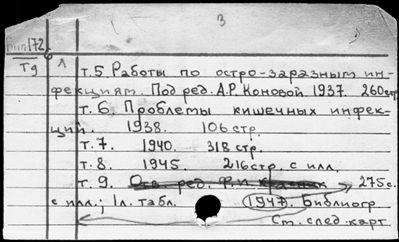 3
172
Тд
т.5. Работы по остро-заразным ин-
фекциям. Под ред. А.Р. Коновой 1937. 260 стр.
т.6. Проблемы кишечных инфек-
ций. 1938. 106 стр.
т.7. 1940. 318 стр.
т.8. 1945. 216 стр. с илл.
т.9. Отв. ред. Ф.И. 275 с.
с илл.; 1 л. табл. 1947. Библиогр
См. след. карт